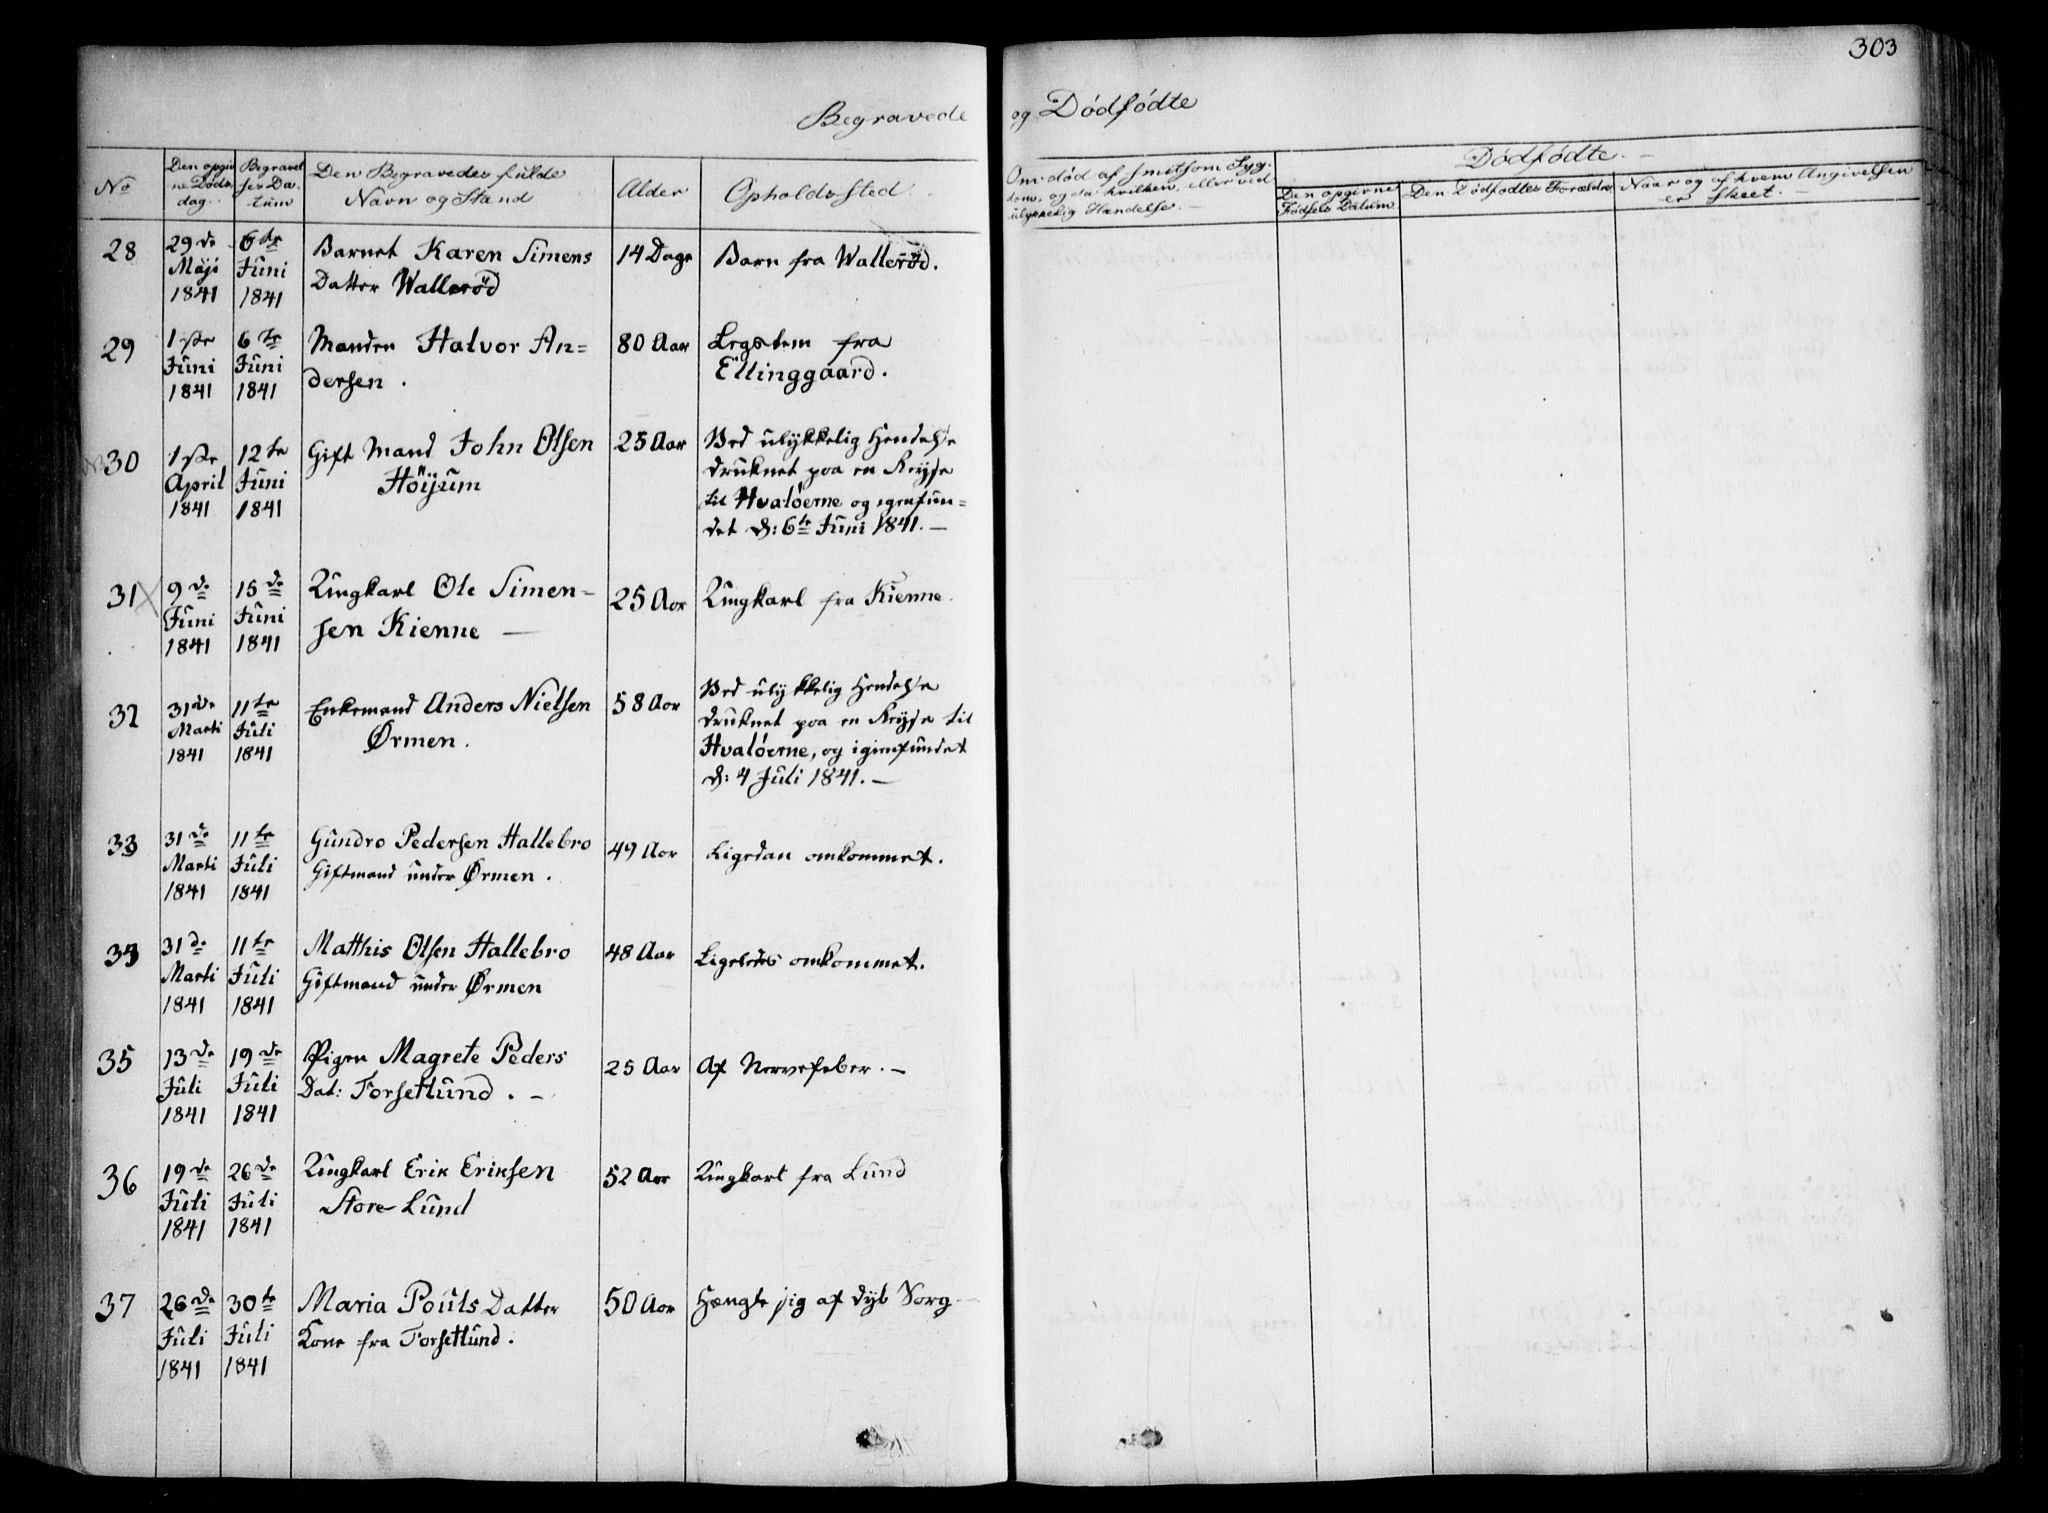 303
Begravede og Dödfödte
No
Den opgivne Döds dag.
Begravelses Datum
Den Begravedes fulde Navn og Stand
Alder
Opholds.sted.
Om död af smitsom Sygdom, og da hvilken, eller ved ulykkelig Hændelse. —
Dödfödte. —
Den opgivne Födsels Datum
Den Dödfödtes Forældre
Naar og af hvem Angivelsen er skeet. —
28
29de Maji 1841
6te Juni 1841
Barnet Karen Simens
Datter Walleröd
14 Dage
Barn fra Walleröd.
29
1ste Juni 1841
6te Juni 1841
Manden Halvor An=
dersen.
80 Aar
Legstem fra
Ellinggaard.
30
1ste April 1841
12te Juni 1841
Gift Mand John Olsen
Höijum
25 Aar
Ved ulykkelig Hendelse
druknet paa en Reijse
til Hvalöerne og igenfun=
det d: 6te Juni 1841. —
31
9de Juni 1841
15de Juni 1841
Ungkarl Ole Simen-
sen Kienne —
25 Aar
Ungkarl fra Kienne.
32
31de Marti 1841
11te Juli 1841
Enkemand Anders Nielsen
Ørmen.
58 Aar
Ved ulykkelig Hendelse
druknet paa en Reijse til
Hvalöerne, og igienfundet
d: 4 Juli 1841. —
33
31de Marti 1841
11te Juli 1841
Gundro Pedersen Hallebro
Giftmand under Ørmen.
49 Aar
Ligedan omkommet.
34
31de Marti 1841
11te Juli 1841
Matthis Olsen Hallebro
Giftmand under Ørmen
48 Aar
Ligeledes omkommet.
35
13de Juli 1841
19de Juli 1841
Pigen Magrete Peders
Dat: Torsetlund. —
25 Aar
Af Nervefeber. —
36
19de Juli 1841
26de Juli 1841
Ungkarl Erik Eriksen
Store Lund
52 Aar
Ungkarl fra Lund
37
26de Juli 1841
30te Juli 1841
Maria Pouls Datter
Kone fra Torsetlund.
50 Aar
Hængte sig af dyb Sorg —